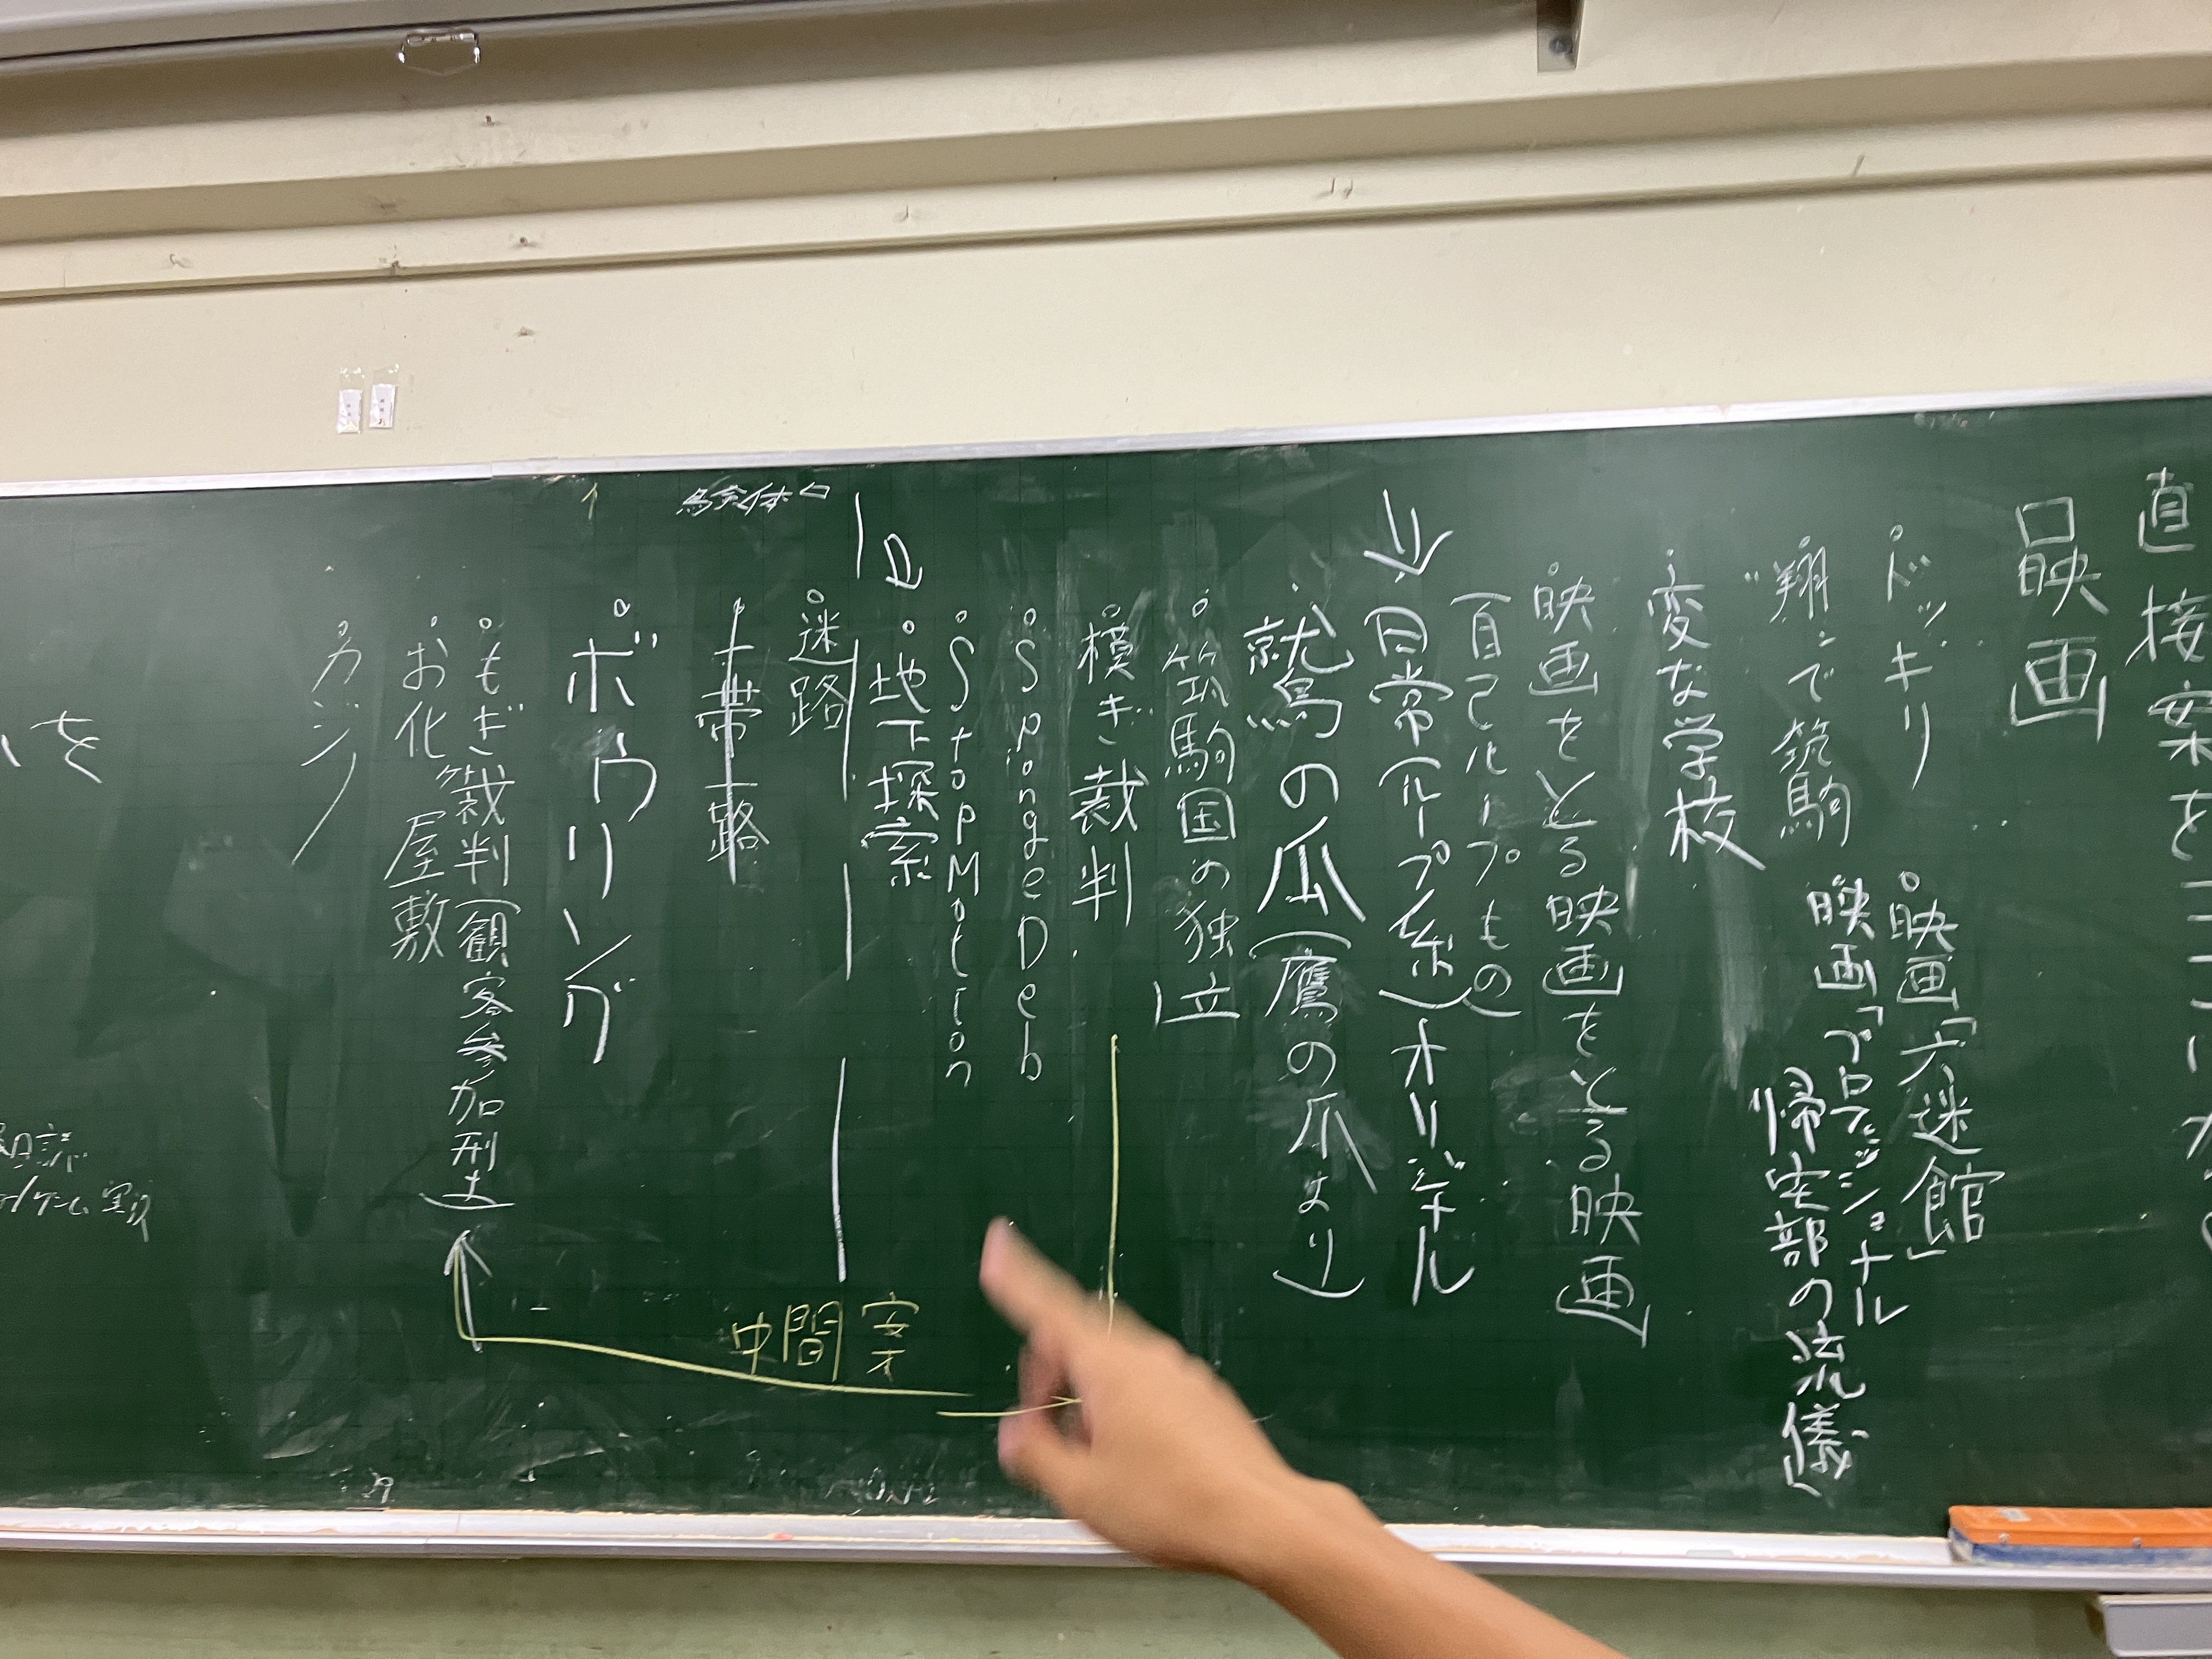 直接案を
映画
ドッキリ
映画「六迷館」
"翔"で筑駒
映画「プロフェッショナル
帰宅部の流儀」
変な学校
映画をとる映画をとる映画
(自己ループもの)
日常(ループ系)オリジナル
鷲の爪(鷹の爪より)
筑駒国の独立
模ぎ裁判
SpongeDeb
StopMotion
地下探索
迷路
一帯一路
ボウリング
もぎ裁判(観客参加型)
お化け屋敷
カジノ
中間案
を